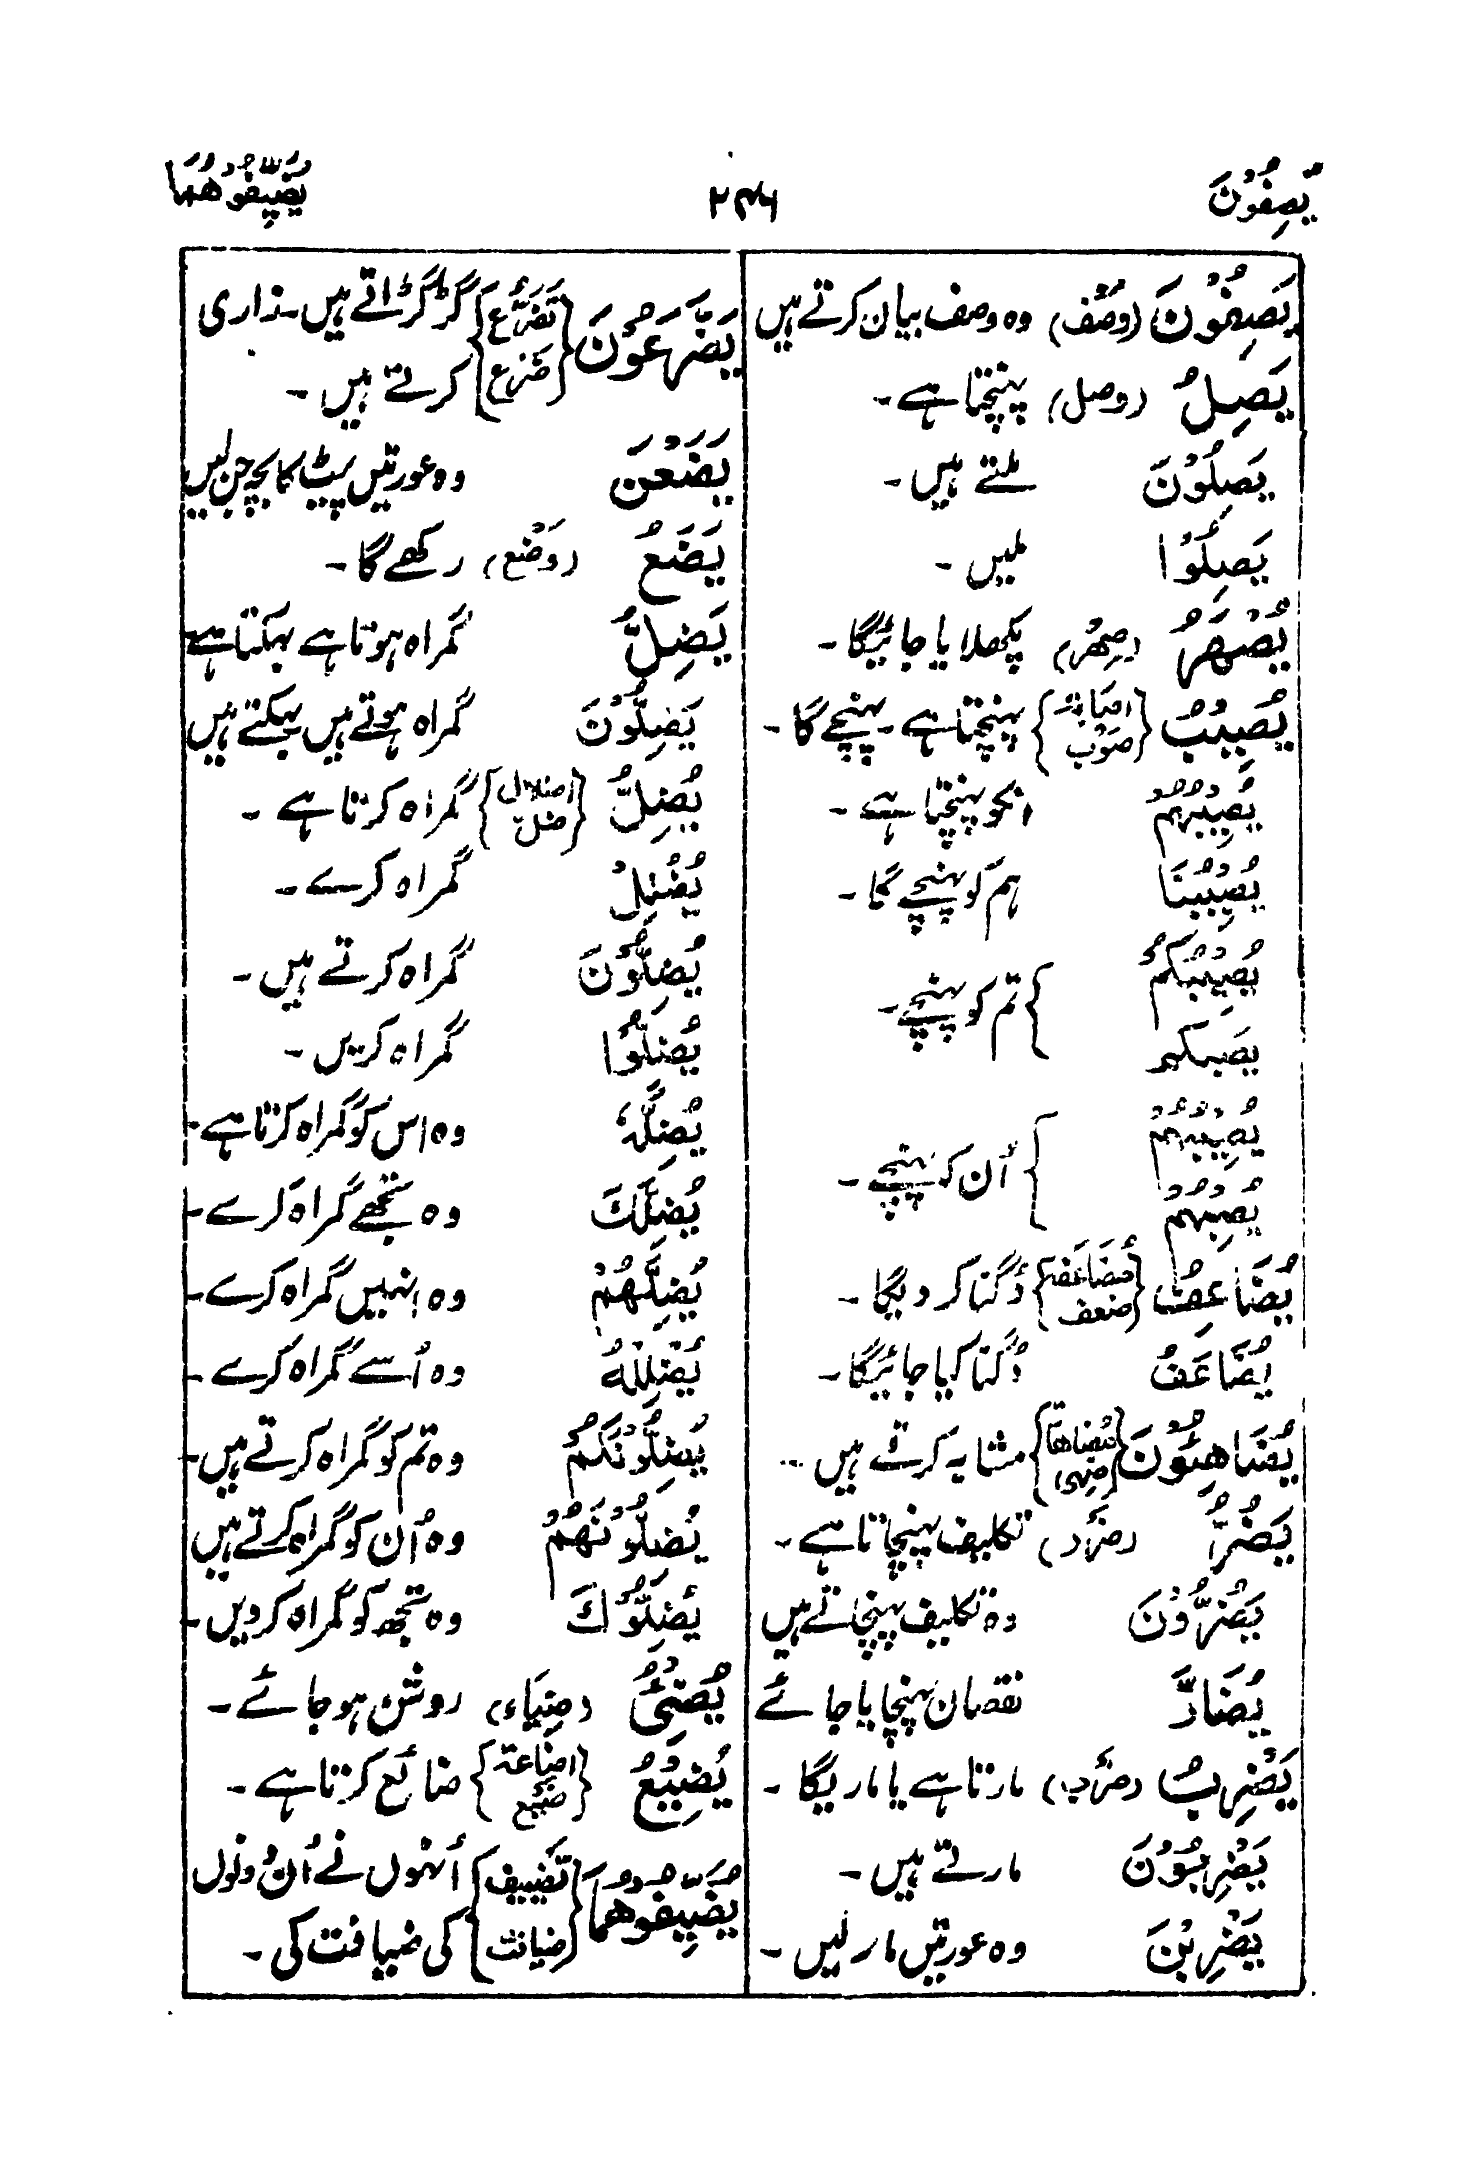 یَصِفُوْنَ
۲۴۶
یُضَیِّفُوْهُمَا
یَصِفُوْنَ (وَصْف) وہ وصف بیان کرتے ہیں
یَصِلُ (وصل) پہنچتا ہے۔
یَصِلُوْنَ ملتے ہیں۔
یَصِلُوْا ملیں۔
یُصْهَرُ (صِهْر) پگھلا یا جائیگا۔
یُصِیْبُ {اصابۃ صَوْب} پہنچتا ہے۔ پہنچے گا۔
یُصِیْبُهُمْ انکو پہنچتا ہے۔
یُصِیْبُنَا ہم کو پہنچے گا۔
یُصِیْبُكُمْ
یصبكم } تم کو پہنچے۔
یُصِیْبُهُمْ
یُصِبْهُمْ } اُن کو پہنچے۔
یُضَاعِفُ {مضاعفۃ ضعف} دُگنا کر دیگا۔
یُضَاعَفُ دُگنا کیا جائیگا۔
یُضَاهِئُوْنَ {مُضاھاۃ ضہی} مشابہ کرتے ہیں۔
یَضُرُّ (ضَرَر) تکلیف پہنچاتا ہے۔
یَضُرُّوْنَ وہ تکلیف پہنچاتے ہیں
یُضَارَّ نقصان پہنچایا جائے
یَضْرِبُ (ضَرْب) مارتا ہے یا مار یگا۔
یَضْرِبُوْنَ مارتے ہیں۔
یَضْرِبْنَ وہ عورتیں مار لیں۔
یَضَّرَّعُوْنَ {تَضَرُّع ضَرْع} گڑگڑاتے ہیں۔ زاری
کرتے ہیں۔
یَضَعْنَ وہ عورتیں پیٹ کا بچہ جن لیں
یَضَعُ (وَضْع) رکھے گا۔
یَضِلُّ گمراہ ہوتا ہے بہکتا ہے
یَضِلُّوْنَ گمراہ ہوتے ہیں بہکتے ہیں
یُضِلُّ {اضلال ضلّ} گمراہ کرتا ہے۔
یُضْلِلْ گمراہ کرے۔
یُضِلُّوْنَ گمراہ کرتے ہیں۔
یُضِلُّوْا گمراہ کریں۔
یُضِلُّہٗ وہ اس کو گمراہ کرتا ہے۔
یُضِلَّكَ وہ تجھے گمراہ کرے۔
یُضِلَّهُمْ وہ انہیں گمراہ کرے۔
یُضْلِلْهُ وہ اُسے گمراہ کرے۔
یُضِلُّوْنَكُمْ وہ تم کو گمراہ کرتے ہیں۔
یُضِلُّوْنَهُمْ وہ اُن کو گمراہ کرتے ہیں
یُضِلُّوْكَ وہ تجھ کو گمراہ کردیں۔
یُضِیْٓءُ (ضِیَاء) روشن ہو جائے۔
یُضِیْعُ {اضاعۃ ضیع} ضائع کرتا ہے۔
یُضَیِّفُوْهُمَا {تَضْیِیف ضیافت} اُنہوں نے اُن دونوں
کی ضیافت کی۔